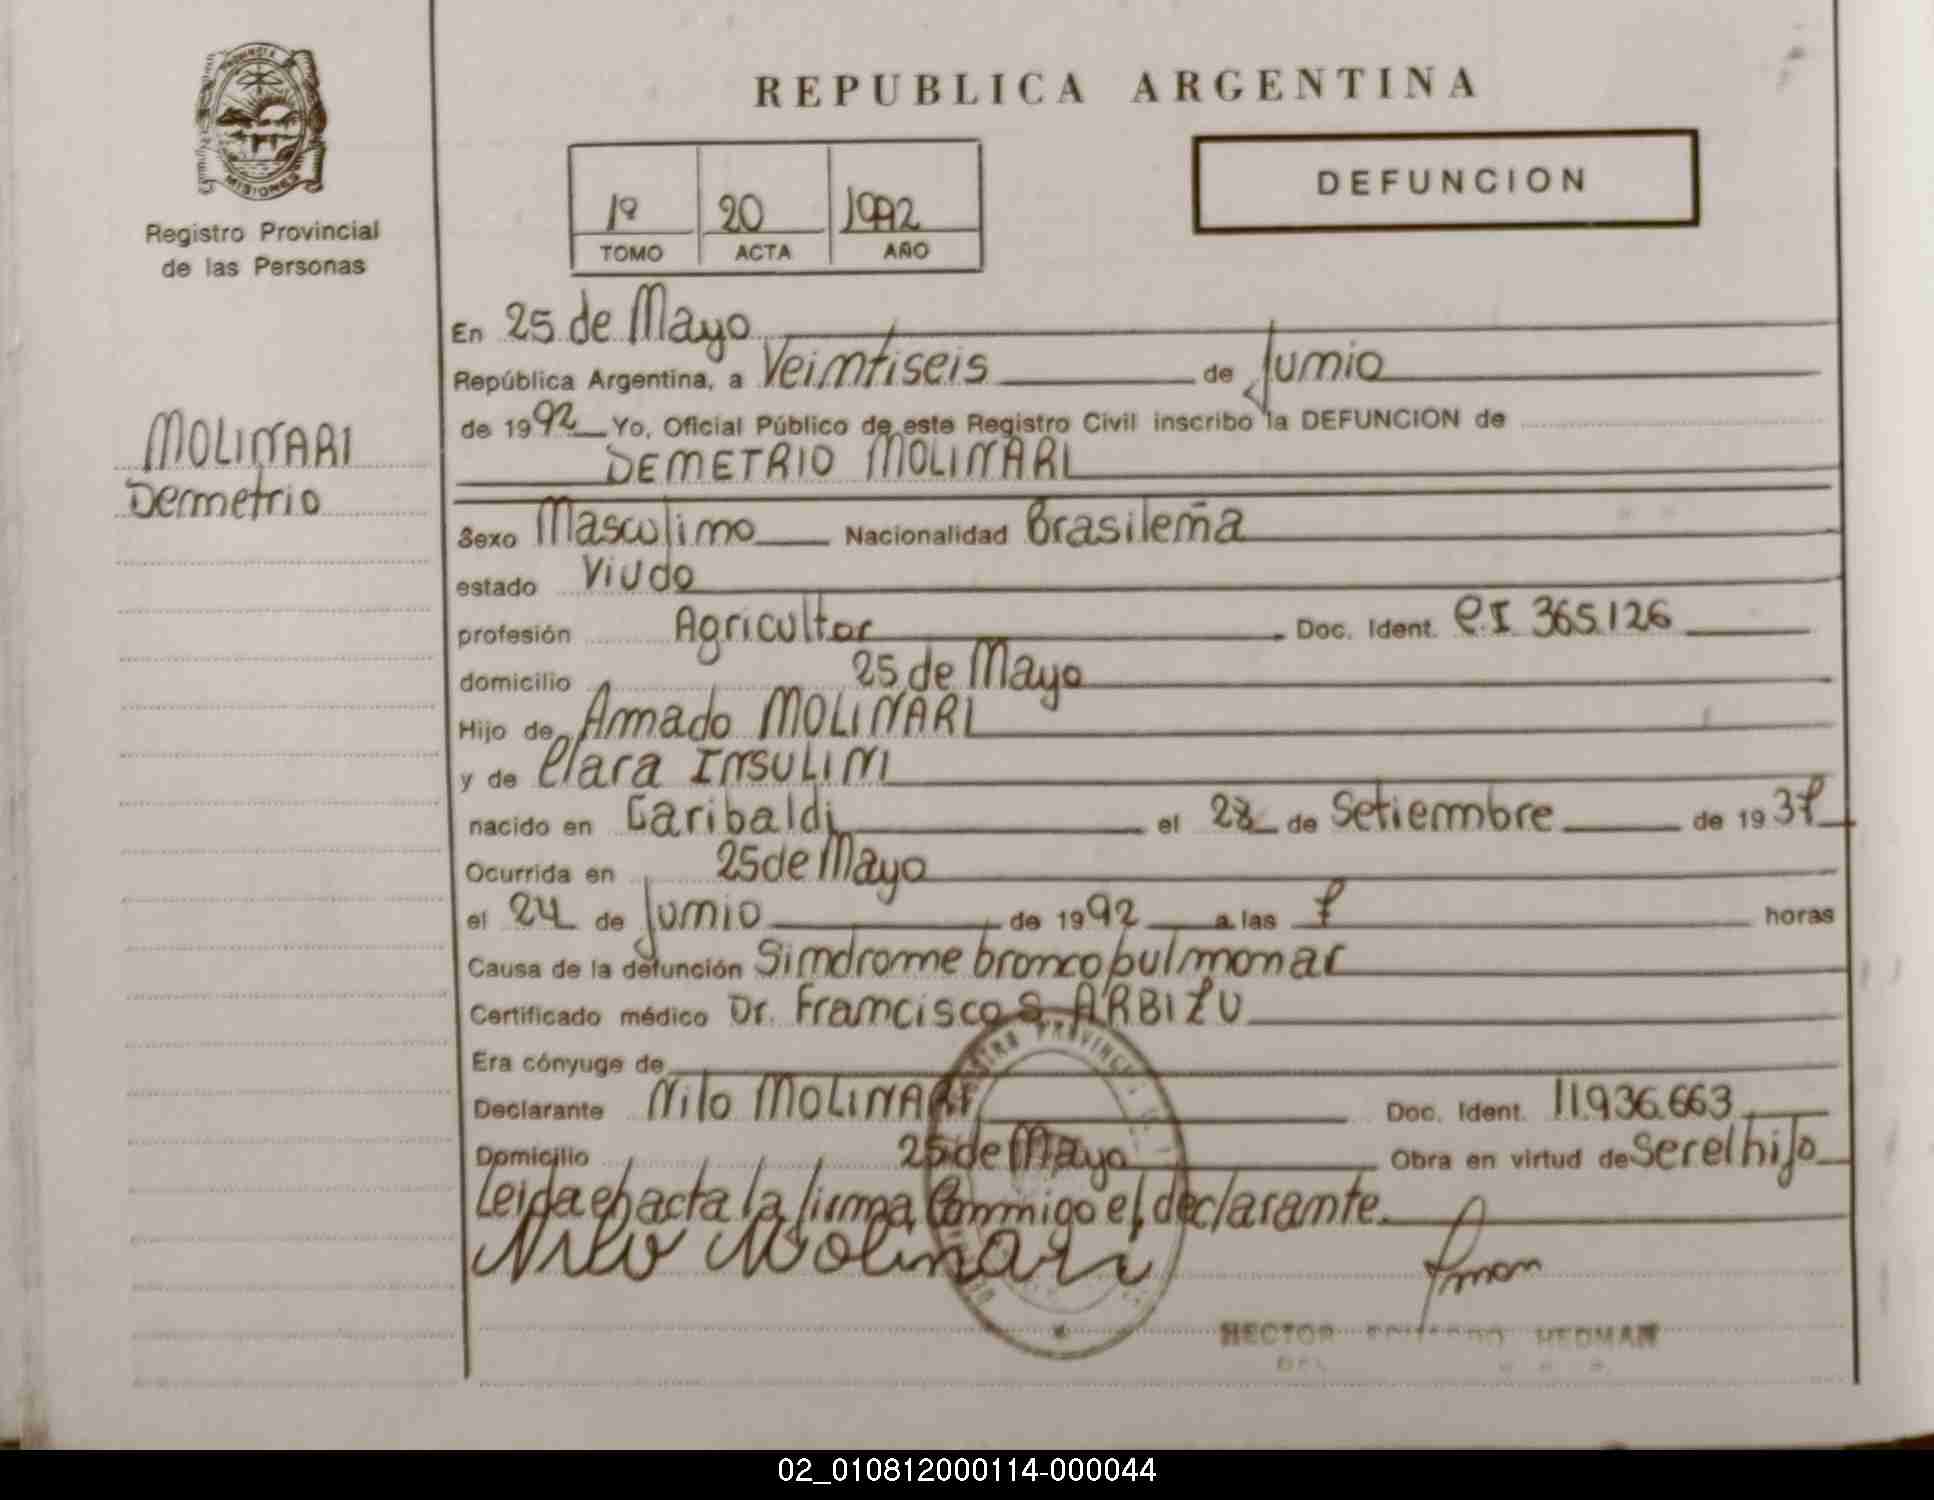 REPUBLICA ARGENTINA
PROVINCIA
MISIONES
Registro Provincial
de las Personas
1º 20 1992
TOMO ACTA AÑO
DEFUNCION
MOLINARI
Demetrio
En 25 de Mayo
República Argentina, a Veintiseis de Junio
de 1992 Yo, Oficial Público de este Registro Civil inscribo la DEFUNCION de
DEMETRIO MOLINARI
Sexo Masculino Nacionalidad Brasileña
estado Viudo
profesión Agricultor Doc. Ident. C.I 365.126
domicilio 25 de Mayo
Hijo de Amado MOLINARI
y de Clara INSULINI
nacido en Garibaldi el 28 de Setiembre de 1937
Ocurrida en 25 de Mayo
el 24 de Junio de 1992 a las 7 horas
Causa de la defunción Sindrome broncopulmonar
Certificado médico Dr. Francisco S. ARBIZU
Era cónyuge de
Declarante Nilo MOLINARI Doc. Ident. 11.936.663
Domicilio 25 de Mayo Obra en virtud de Ser el hijo
Leida el acta la firma Conmigo el declarante.
Nilo Molinari
HECTOR HEDMAN
02_010812000114-000044